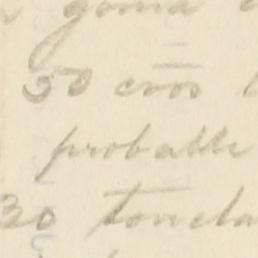 goma
50 cros
probable
30 tonela